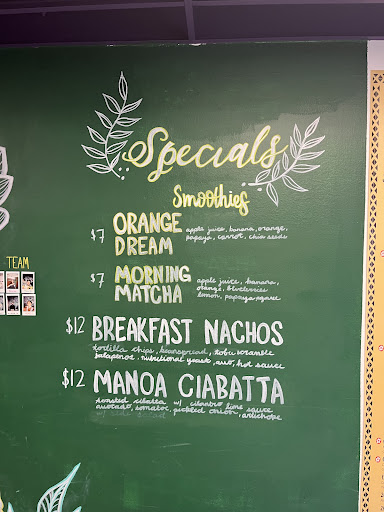 Specials
Smoothies
TEAM
$7 ORANGE DREAM
apple juice, banana, orange,
papaya, carrot, chia seeds
$7 MORNING MATCHA
apple juice, banana,
orange, blueberries
lemon, papaya agave
$12 BREAKFAST NACHOS
tortilla chips, beanspread, tofu scramble
jalapenos, nutritional yeast, avo, hot sauce
$12 MANOA CIABATTA
toasted cibatta w/ cilantro lime sauce
avocado, tomatoe, pickled onion, artichope